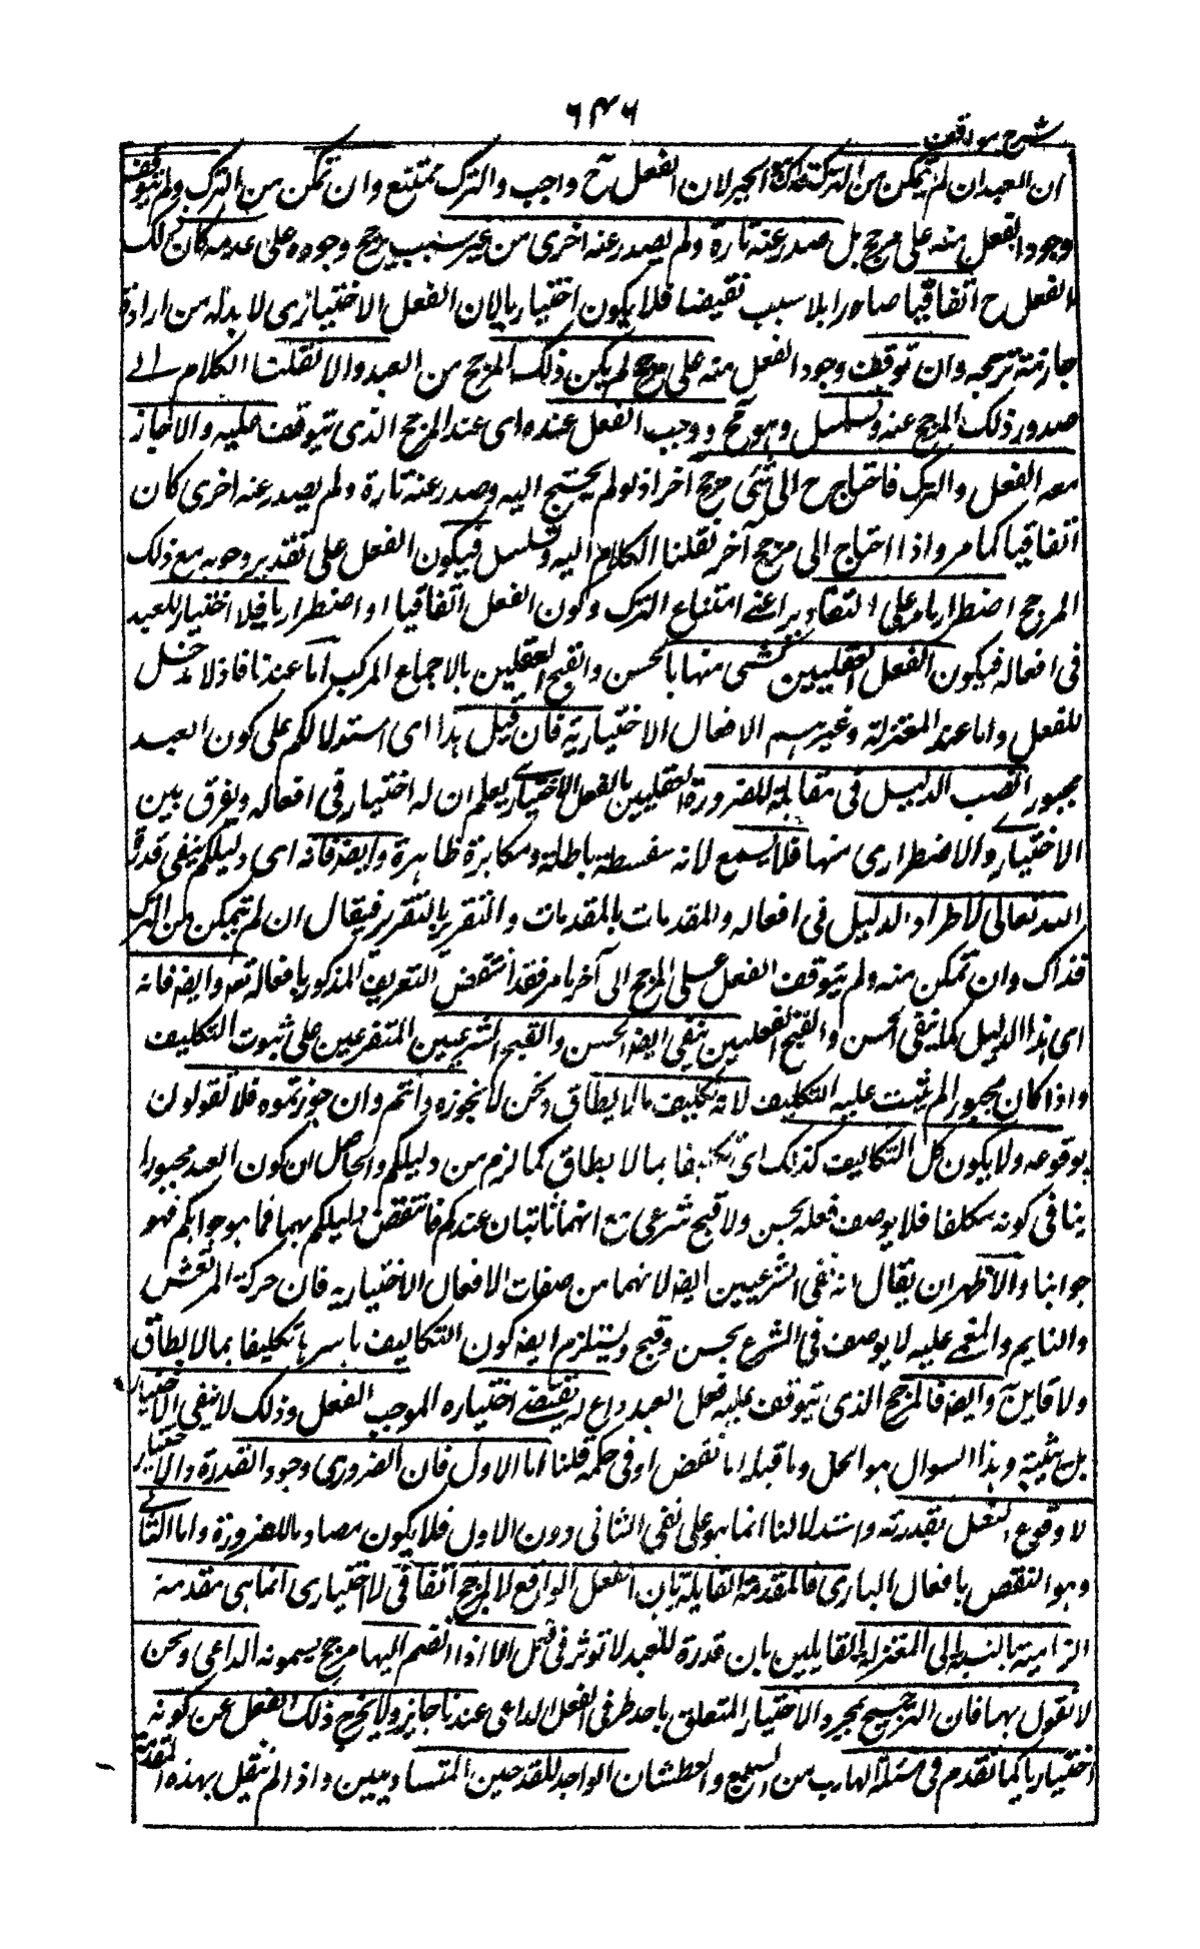 ۶۴۶
شرح مواقف
ان العبد ان لم يتمكن من الترك فذاك هو الجبر لان الفعل ح واجب والترك ممتنع وان تمكن من الترك ولم يتوقف
وجود الفعل منه على مرجح بل صدر عنه تارة ولم يصدر عنه اخرى من غير سبب يرجح وجوده على عدمه كان ذلك
الفعل ح اتفاقيا صادرا بلا سبب تقيضا فلا يكون اختياريا لان الفعل الاختيارى لا بد له من ارادة
جازمة ترجحه وان توقف وجود الفعل منه على مرجح لم يكن ذلك المرجح من العبد والا نقلنا الكلام الى
صدور ذلك المرجح عنه وتسلسل وهو مح ووجب الفعل عنده اى عند المرجح الذى يتوقف عليه والا جاز
معه الفعل والترك فاحتاج ح الى شئ مرجح آخر اذ لو لم يحتج اليه وصدر عنه تارة ولم يصدر عنه اخرى كان
اتفاقيا كما مر واذا احتاج الى مرجح آخر نقلنا الكلام اليه وتسلسل فيكون الفعل على تقدير وجوبه مع ذلك
المرجح اضطراريا وعلى التقادير اعنى امتناع الترك وكون الفعل اتفاقيا او اضطراريا فلا اختيار للعبد
فى افعاله فيكون الفعل العقليين شئ منها بالحسن والقبح العقليين بالاجماع المركب اما عندنا فاذ لا مدخل
للفعل واما عند المعتزلة وغيرهم الافعال الاختيارية فان قيل هذا اى استدلالكم على كون العبد
مجبورا نصب الدليل فى مقابلة الضرورة العقليين بالفعل الاختيارى يعلم ان له اختيار فى افعاله ويفرق بين
الاختيارى والاضطرارى منها فلا يسمع لانه سفسطة باطلة ومكابرة ظاهرة وايضا فانه اى دليلكم ينفى قدرة
الله تعالى لاطراد الدليل فى افعاله والمقدمات بالمقدمات والتقرير بالتقرير فيقال ان لم يتمكن من الترك
فذاك وان تمكن منه ولم يتوقف الفعل على المرجح الى آخر ما مر فقد انتقض التعريف المذكور بافعاله تعه وايضا فانه
اى هذا الدليل كما ينفى الحسن والقبح العقليين ينفى ايضا الحسن والقبح الشرعيين المتفرعين على ثبوت التكليف
واذا كان مجبورا لم يثبت عليه التكليف لانه تكليف ما لا يطاق ونحن لا نجوزه وانتم وان جوزتموه فلا تقولون
بوقوعه ولا يكون كل التكاليف كذلك اى تكليفا بما لا يطاق كما لزم من دليلكم والحاصل ان كون العبد مجبورا
ينافى كونه مكلفا فلا يوصف فعله بحسن ولا قبح شرعى مع انهما ثابتان عندكم فانتقض دليلكم بهما فما هو جوابكم فهو
جوابنا والاظهر ان يقال انه نفى الشرعيين ايضا لانهما من صفات الافعال الاختيارية فان حركة المرتعش
والنايم والمغمى عليه لا يوصف فى الشرع بحسن وقبح ويستلزم ايضا كون التكاليف باسرها تكليفا بما لا يطاق
ولا قايل به وايضا فالمرجح الذى يتوقف عليه فعل العبد داع له يقتضى اختياره الموجب الفعل وذلك لا ينفى الاختيار
بل يثبته وهذا السوال هو الحل وما قبله اما نقض او فى حكمه قلنا اما الاول فان الضرورى وجود القدرة والاختيار
لا وقوع الفعل بقدرته واستدلالنا انما هو على نفى الثانى دون الاول فلا يكون مصادما للضرورة واما الثانى
وهو النقض بافعال البارى فالمقدمة القايلة بان الفعل الواقع لا لمرجح اتفاقى لا اختيارى انما هى مقدمة
الزامية بالنسبة الى المعتزلة القايلين بان قدرة للعبد لا توثر فى فعل الا اذا انضم اليها مرجح يسمونه الداعى ونحن
لا نقول بها فان الترجيح بمجرد الاختيار المتعلق باحد طرفى الفعل لا لداعى عندنا جايز ولا يخرج ذلك الفعل عن كونه
اختياريا كما تقدم فى مسئلة الهارب من السبع والعطشان الواجد للقدحين المتساويين واذا لم نقل بهذه المقدمة